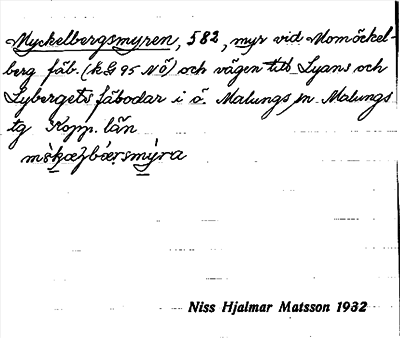 Myckelbergsmyren, 582, myr vid Momöckel-
berg fäb. (k G 95 N Ö) och vägen till Lyans och
Lybergets fäbodar i ö. Malungs sn Malungs
tg Kopp. län
Niss Hjalmar Matsson 1932